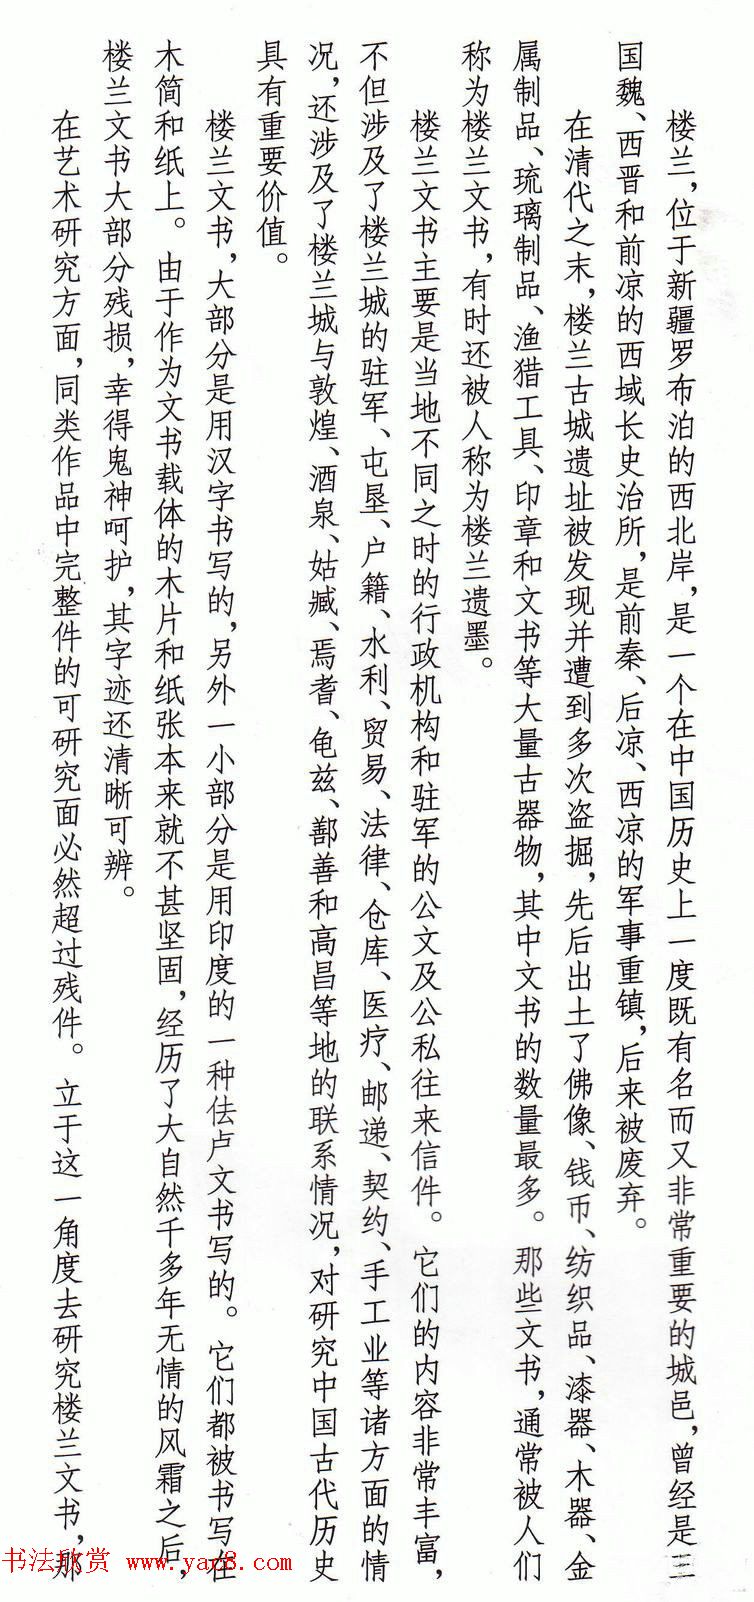 楼兰，位于新疆罗布泊的西北岸，是一个在中国历史上一度既有名而又非常重要的城邑，曾经是三
国魏、西晋和前凉的西域长史治所，是前秦、后凉、西凉的军事重镇，后来被废弃。
在清代之末，楼兰古城遗址被发现并遭到多次盗掘，先后出土了佛像、钱币、纺织品、漆器、木器、金
属制品、琉璃制品、渔猎工具、印章和文书等大量古器物，其中文书的数量最多。那些文书，通常被人们
称为楼兰文书，有时还被人称为楼兰遗墨。
楼兰文书主要是当地不同之时的行政机构和驻军的公文及公私往来信件。它们的内容非常丰富，
不但涉及了楼兰城的驻军、屯垦、户籍、水利、贸易、法律、仓库、医疗、邮递、契约、手工业等诸方面的情
况，还涉及了楼兰城与敦煌、酒泉、姑臧、焉耆、龟兹、鄯善和高昌等地的联系情况，对研究中国古代历史
具有重要价值。
楼兰文书，大部分是用汉字书写的，另外一小部分是用印度的一种佉卢文书写的。它们都被书写在
木简和纸上。由于作为文书载体的木片和纸张本来就不甚坚固，经历了大自然千多年无情的风霜之后，
楼兰文书大部分残损，幸得鬼神呵护，其字迹还清晰可辨。
在艺术研究方面，同类作品中完整件的可研究面必然超过残件。立于这一角度去研究楼兰文书，那
书法欣赏 www.yac8.com